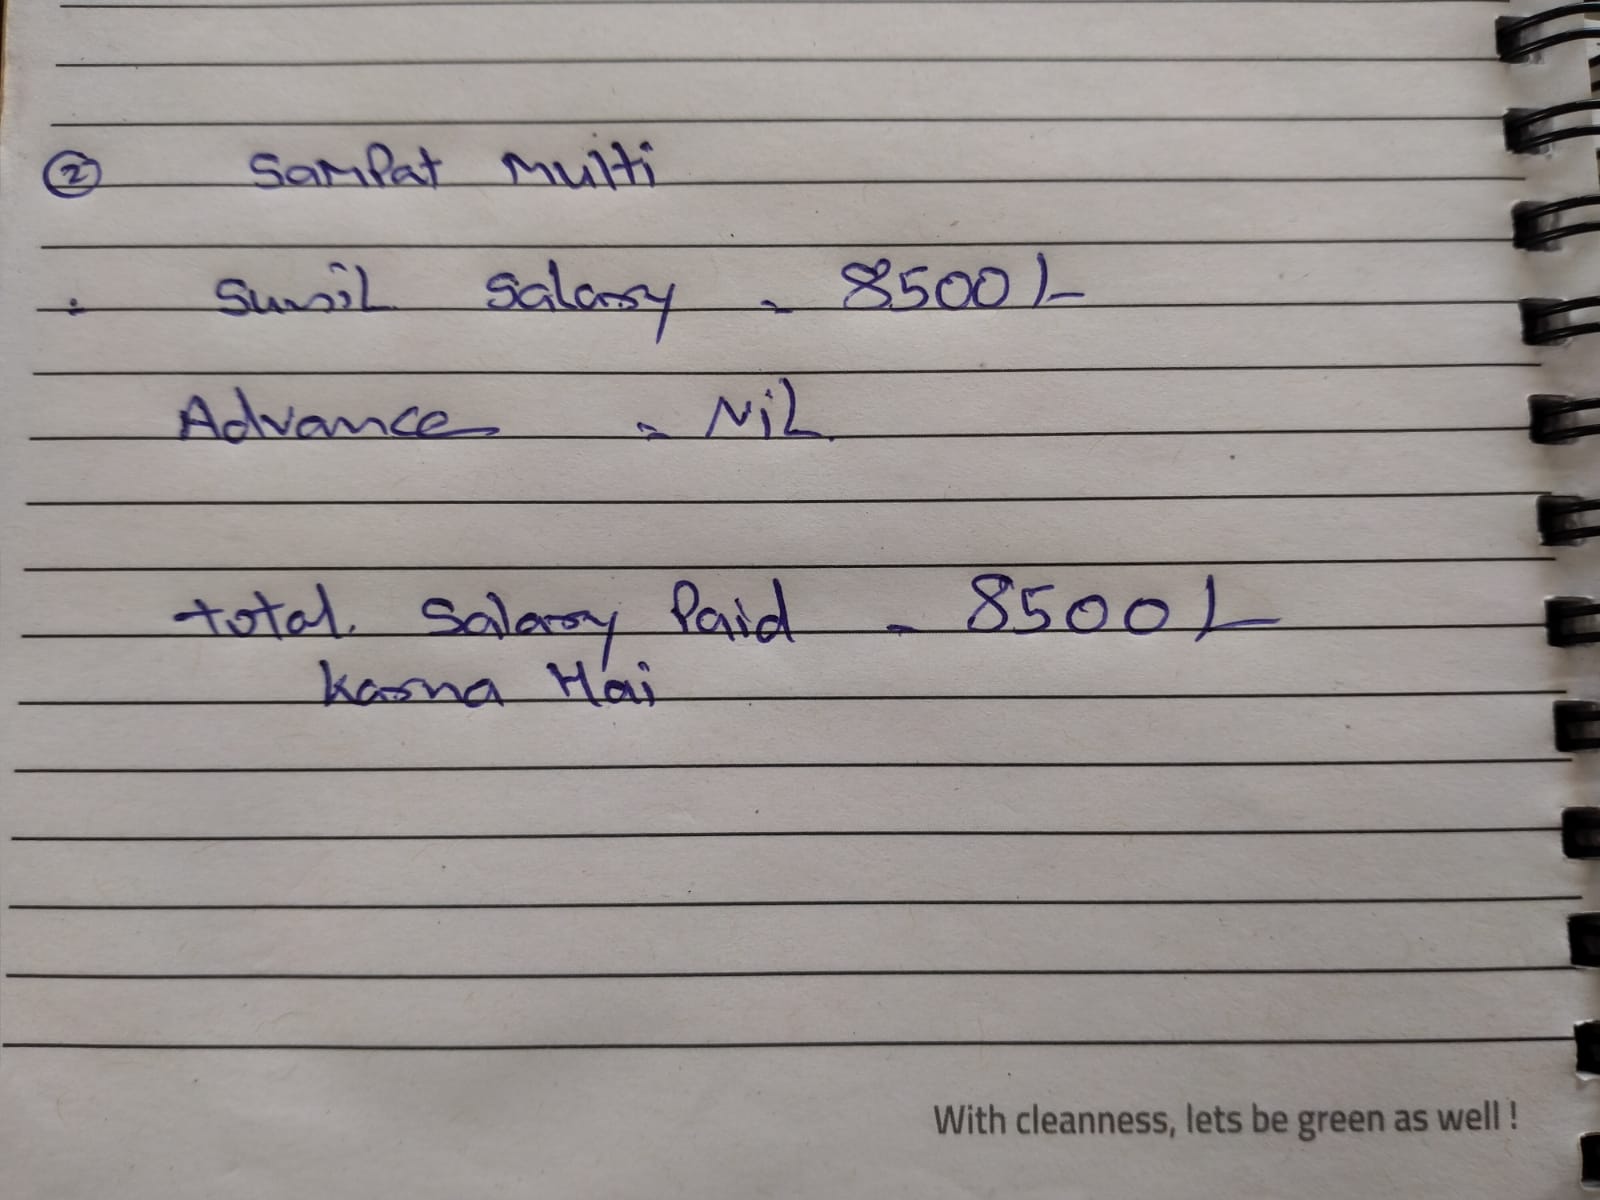 ② Sampat Multi
: Sunil Salary = 8500/-
Advance = NiL
total. Salary Paid - 8500/-
karna Hai
With cleanness, lets be green as well !